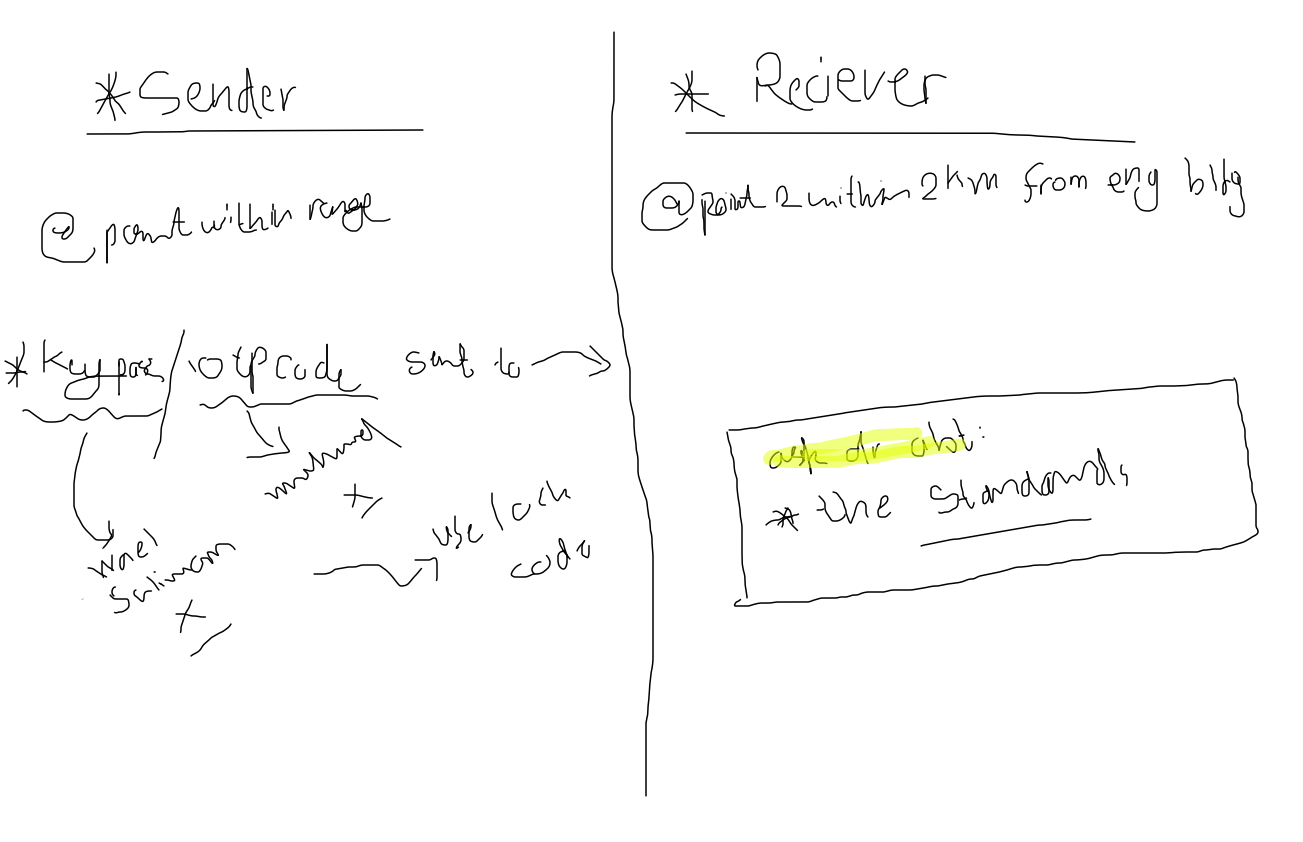 * Sender
@ point within range
* Key pass / OTP code sent to →
wael
Suliman
X
X
→ use lock
code
* Reciever
@ point 2 within 2 km from eng bldg
ask dr abt:
* the standards